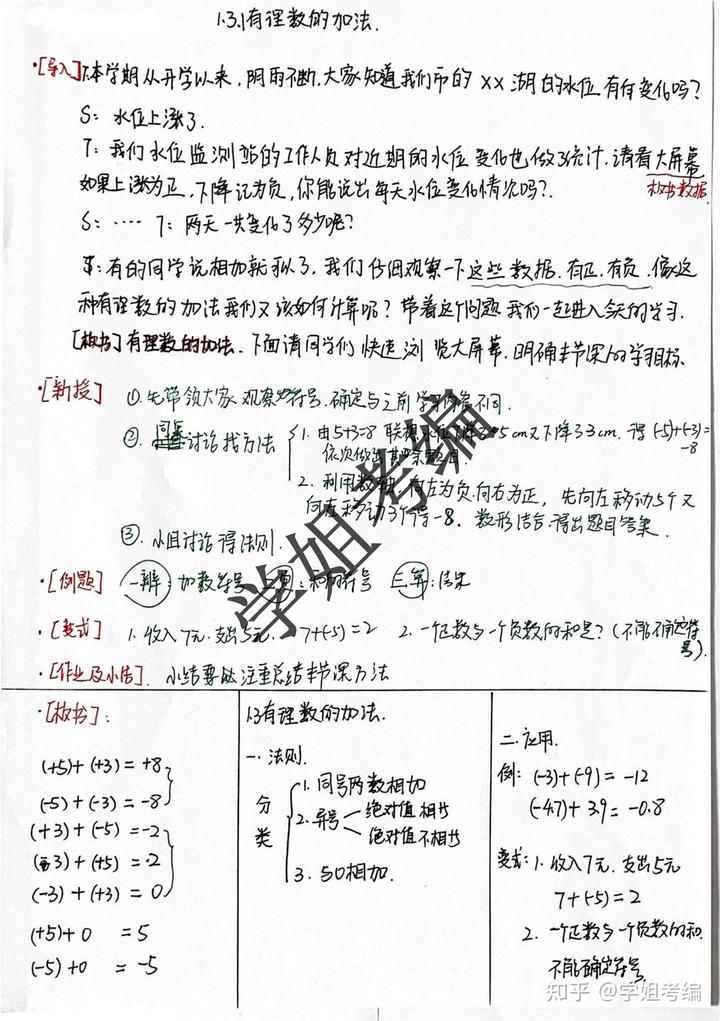 1.3.1有理数的加法.
·[导入]T:本学期从开学以来,阴雨不断,大家知道我们市的××湖的水位有何变化吗?
S: 水位上涨了.
T: 我们水位监测站的工作人员对近期的水位变化也做了统计,请看大屏幕
如果上涨为正,下降记为负,你能说出每天水位变化情况吗?.
板书数据.
S: ···· T: 两天一共变化了多少呢?
有的同学说相加就可以了,我们仔细观察一下这些数据.有正,有负.像这
种有理数的加法我们又该如何计算呢?带着这个问题我们一起进入今天的学习.
[板书]有理数的加法. 下面请同学们快速浏览大屏幕.明确本节课的学习目标.
·[新授] ①先带领大家观察符号.确定与之前学习内容不同.
② 同桌讨论找方法
1. 由5+3=8 联想水位下降5cm又下降33cm. 得(-5)+(-3)=
-8
依次做出其余题目.
2. 利用数轴 向左为负.向右为正, 先向左移动5个又
向左移动3个得-8. 数形结合得出题目答案.
③ 小组讨论得法则.
·[例题] 一辨:加数符号 二定:和的符号 三算:结果
·[变式] 1.收入7元.支出5元. 7+(-5)=2 2.一个正数与一个负数的和是?(不能确定符
号).
·[作业及小结]. 小结要做注重总结本节课方法
·[板书]:
(+5)+(+3)=+8
(-5)+(-3)=-8
(+3)+(-5)=-2
(-3)+(+5)=2
(-3)+(+3)=0
(+5)+0 =5
(-5)+0 =-5
1.3有理数的加法.
一.法则.
分类
1. 同号两数相加
2. 异号
绝对值相等
绝对值不相等
3. 与0相加.
二.应用.
例: (-3)+(-9)=-12
(-4.7)+3.9=-0.8
变式:1.收入7元.支出5元
7+(-5)=2
2. 一个正数与一个负数的和.
不能确定符号.
学姐考编
知乎 @学姐考编